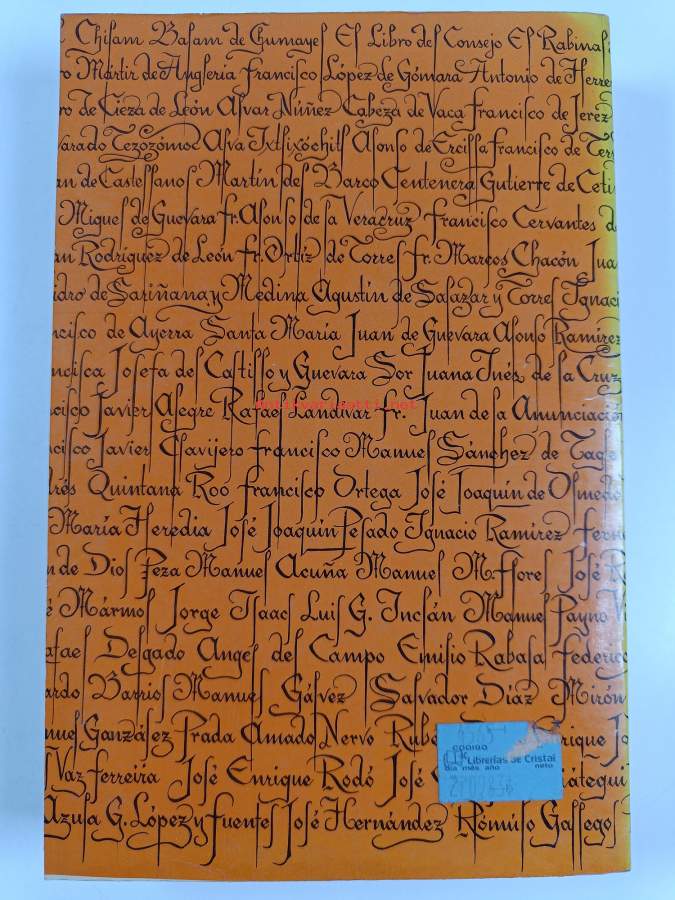 Chilam Balam de Chumayel El Libro del Consejo El Rabinal
o Mártir de Anglería Francisco López de Gómara Antonio de Herre
ro de Cieza de León Alvar Núñez Cabeza de Vaca Francisco de Jerez
varado Tezozómoc Alva Ixtlixóchitl Alonso de Ercilla Francisco de Ter
an de Castellanos Martín del Barco Centenera Gutierre de Ceti
Miguel de Guevara fr. Alonso de la Veracruz Francisco Cervantes d
an Rodríguez de León fr. Ortíz de Torres fr. Marcos Chacón Jua
idro de Sariñana y Medina Agustín de Salazar y Torres Ignaci
ncisco de Ayerra Santa María Juan de Guevara Alonso Ramírez
ncisca Josefa del Castillo y Guevara Sor Juana Inés de la Cruz
ncisco Javier Alegre Rafael Landívar fr. Juan de la Anunciación
antikvariaatti.net
ncisco Javier Clavijero Francisco Manuel Sánchez de Tagle
drés Quintana Roo Francisco Ortega José Joaquín de Olmedo
María Heredia José Joaquín Pesado Ignacio Ramírez Fern
n de Dios Peza Manuel Acuña Manuel M. Flores José R
é Mármol Jorge Isaacs Luis G. Inclán Manuel Payno V
afael Delgado Angel del Campo Emilio Rabasa Federico
ardo Barrios Manuel Gálvez Salvador Díaz Mirón
nuel Ganzález Prada Amado Nervo Rube rique
Vaz Ferreira José Enrique Rodó José iátegui
CODIGO
Librerías de Cristal
día mes año neto
azuela G. López y Fuentes José Hernández Rómulo Gallegos